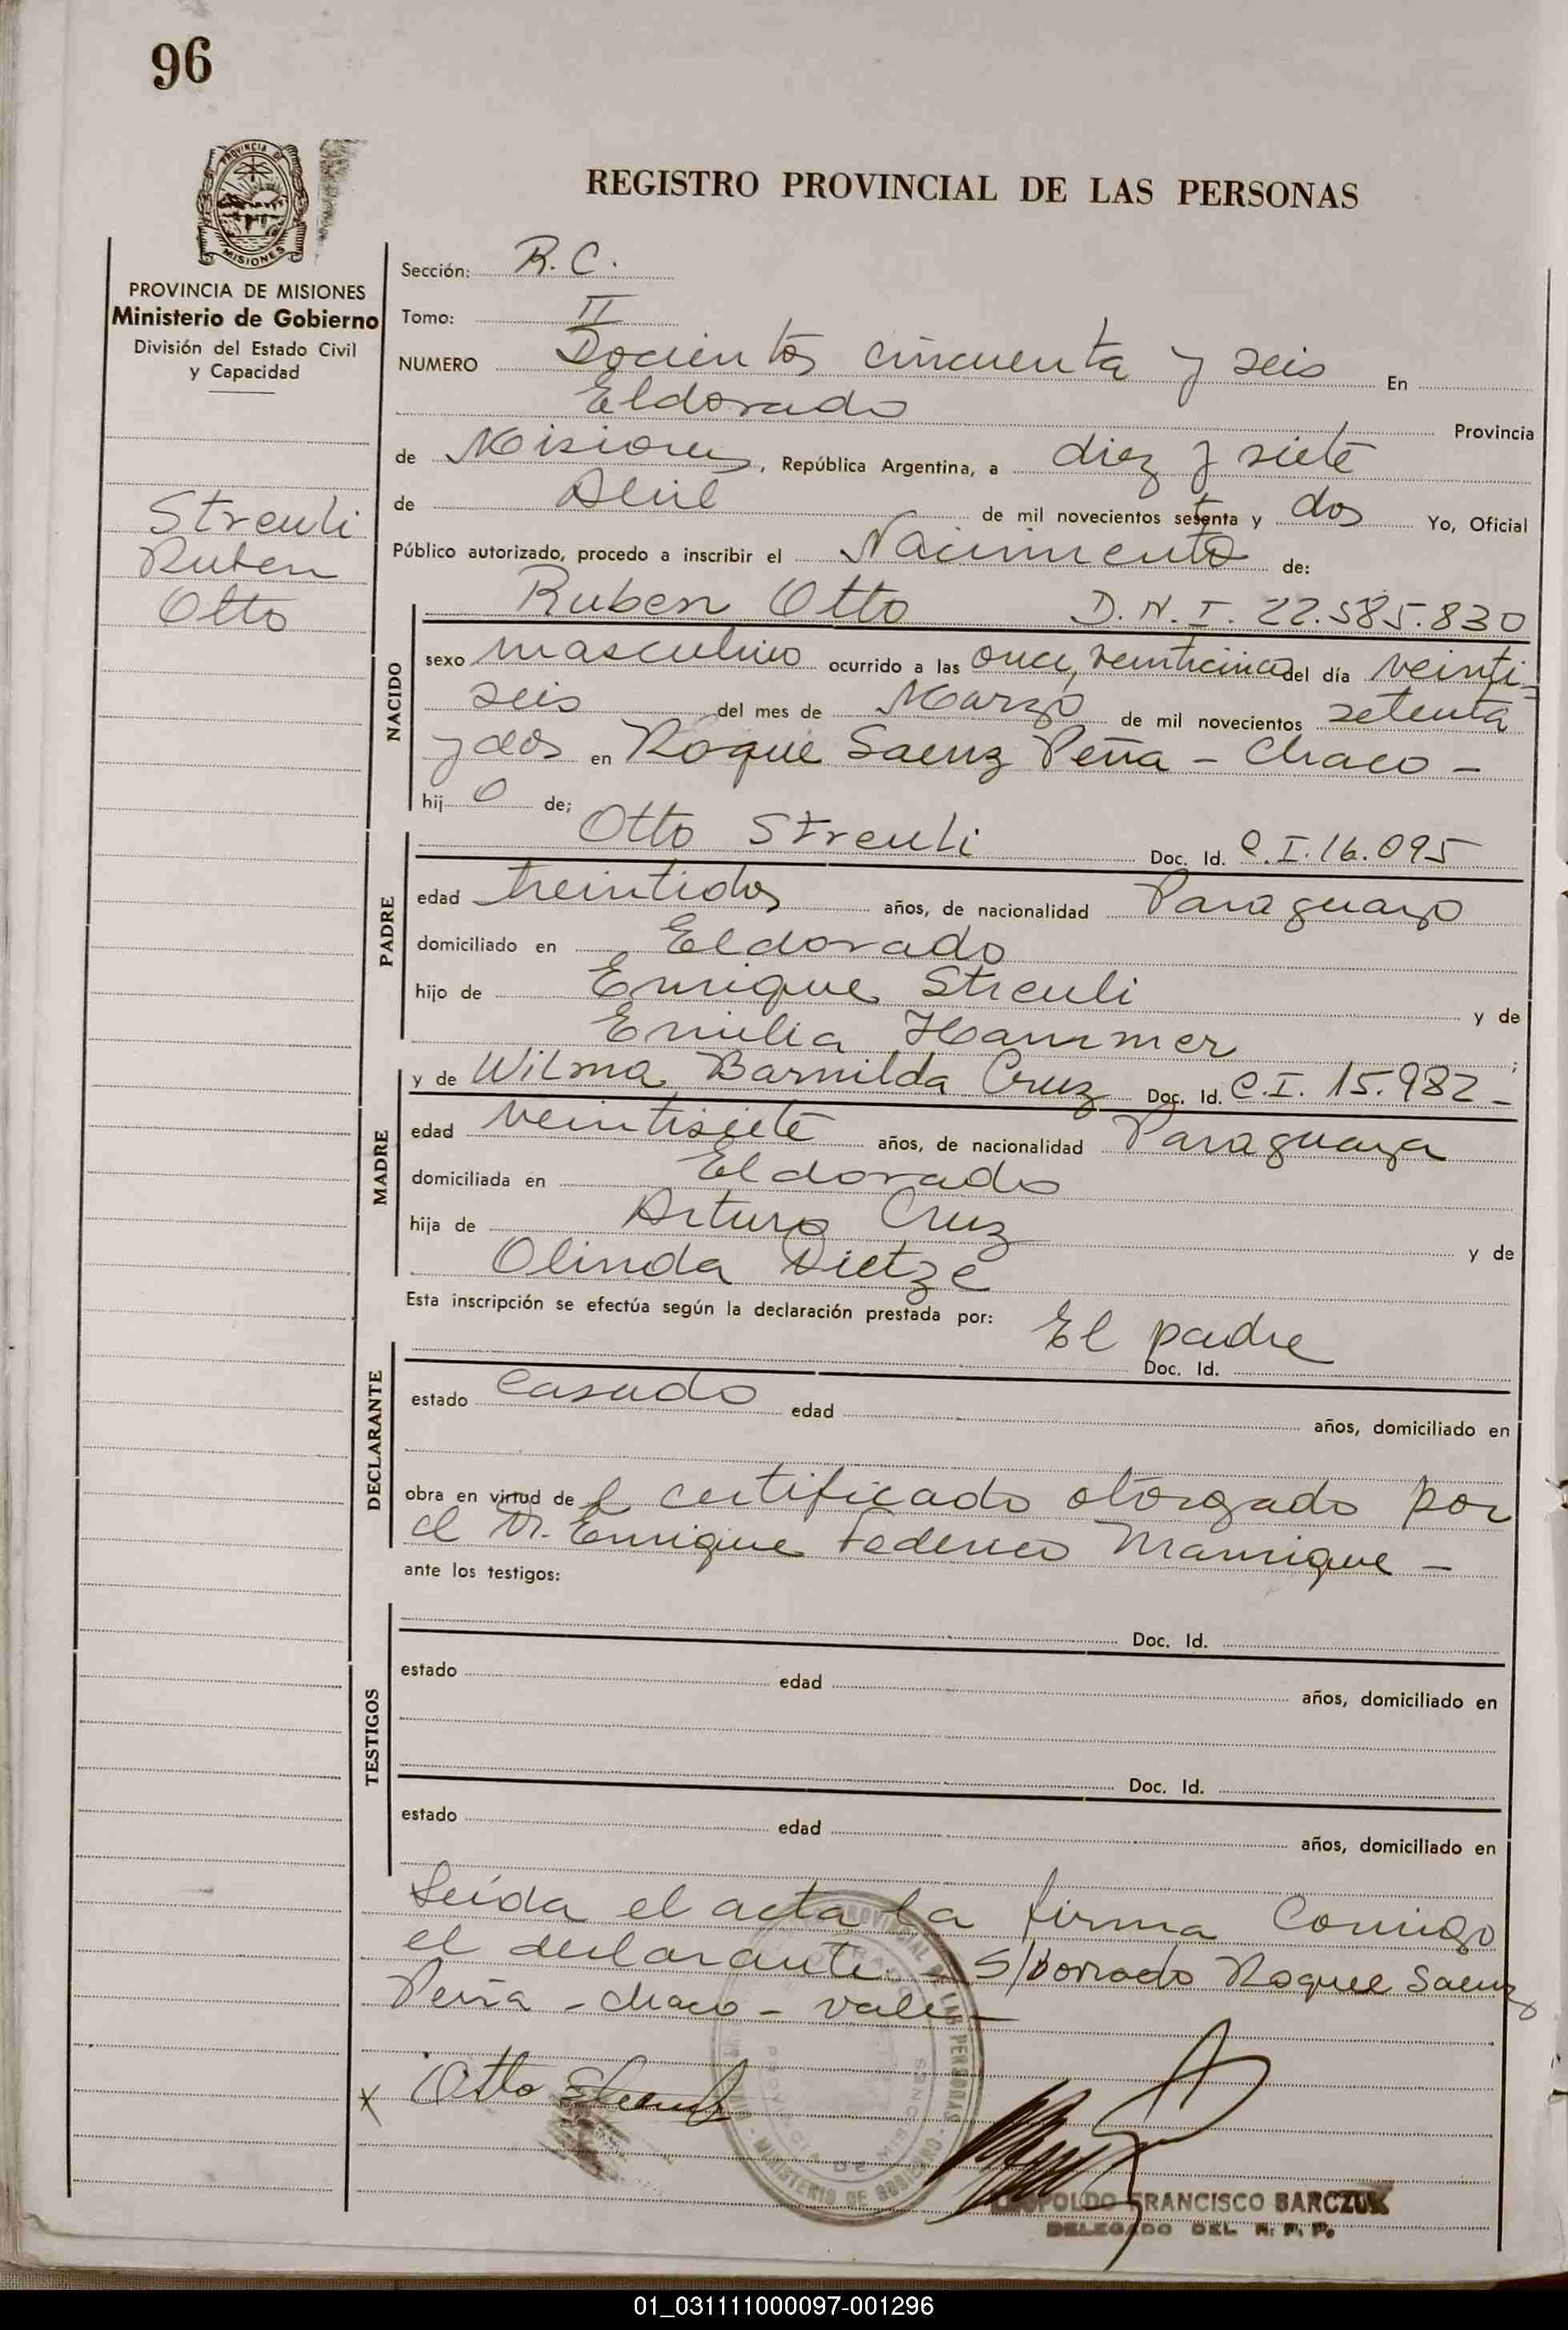 96
PROVINCIA DE
MISIONES
REGISTRO PROVINCIAL DE LAS PERSONAS
PROVINCIA DE MISIONES
Ministerio de Gobierno
División del Estado Civil
y Capacidad
Streuli
Ruben
Otto
Sección: R. C.
Tomo: II
NUMERO Docientos cincuenta y seis En
Eldorado Provincia
de Misiones, República Argentina, a diez y siete
de Abril de mil novecientos setenta y dos Yo, Oficial
Público autorizado, procedo a inscribir el Nacimiento de:
Ruben Otto D.N.I. 22.585.830
NACIDO
sexo masculino ocurrido a las once, veinticinco del día veinti-
seis del mes de Marzo de mil novecientos setenta
y dos en Roque Saenz Peña - Chaco -
hij o de;
Otto Streuli Doc. Id. C.I. 16.095
PADRE
edad treintidos años, de nacionalidad Paraguayo
domiciliado en Eldorado
hijo de Enrique Streuli y de
Emilia Hammer ;
y de Wilma Barnilda Cruz Doc. Id. C.I. 15.982 -
MADRE
edad veintisiete años, de nacionalidad Paraguaya
domiciliada en Eldorado
hija de Arturo Cruz y de
Olinda Dietze
Esta inscripción se efectúa según la declaración prestada por: El padre
Doc. Id.
DECLARANTE
estado casado edad años, domiciliado en
obra en virtud de l certificado otorgado por
el Dr. Enrique Federico Manrique -
ante los testigos:
Doc. Id.
TESTIGOS
estado edad años, domiciliado en
Doc. Id.
estado edad años, domiciliado en
Leída el acta la firma Conmigo
el declarante. - S/borrado Roque Saenz
Peña - Chaco - vale -
x Otto Streuli
PROVINCIAL DE LAS PERSONAS - MINISTERIO DE GOBIERNO -
PROVINCIA DE MISIONES
LEOPOLDO FRANCISCO BARCZUK
DELEGADO DEL R. P. P.
01_031111000097-001296